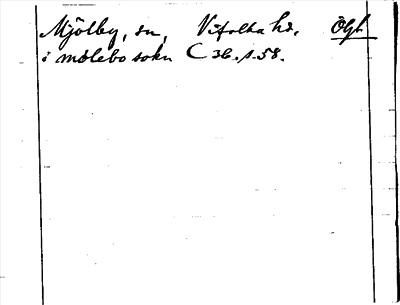 Mjölby, sn, Vifolka hd. Ögl
i mölebo sokn C 36. s. 58.